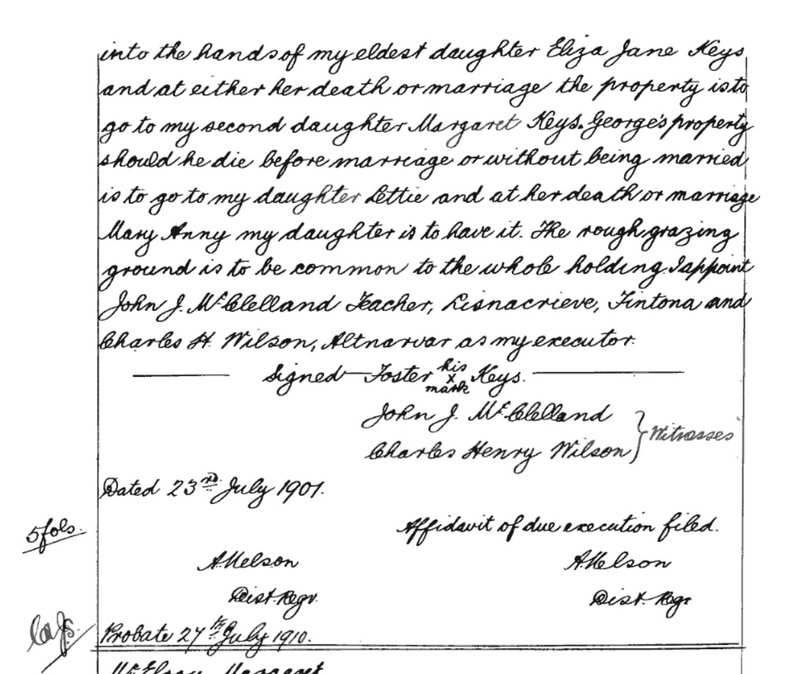 into the hands of my eldest daughter Eliza Jane Keys
and at either her death or marriage the property is to
go to my second daughter Margaret Keys. George's property
should he die before marriage or without being married
is to go to my daughter Lettie and at her death or marriage
Mary Anny my daughter is to have it. The rough grazing
ground is to be common to the whole holding I appoint
John J. McClelland Teacher, Lisnacrieve, Fintona and
Charles H. Wilson, Altnarvar as my executor.
Signed Foster his x mark Keys.
John J. McClelland
Charles Henry Wilson } Witnesses
Dated 23rd July 1901.
5 fols.
Affidavit of due execution filed.
A Nelson A Nelson
Dist. Regr. Dist. Regr
Probate 27th July 1910.
McElroy Margaret